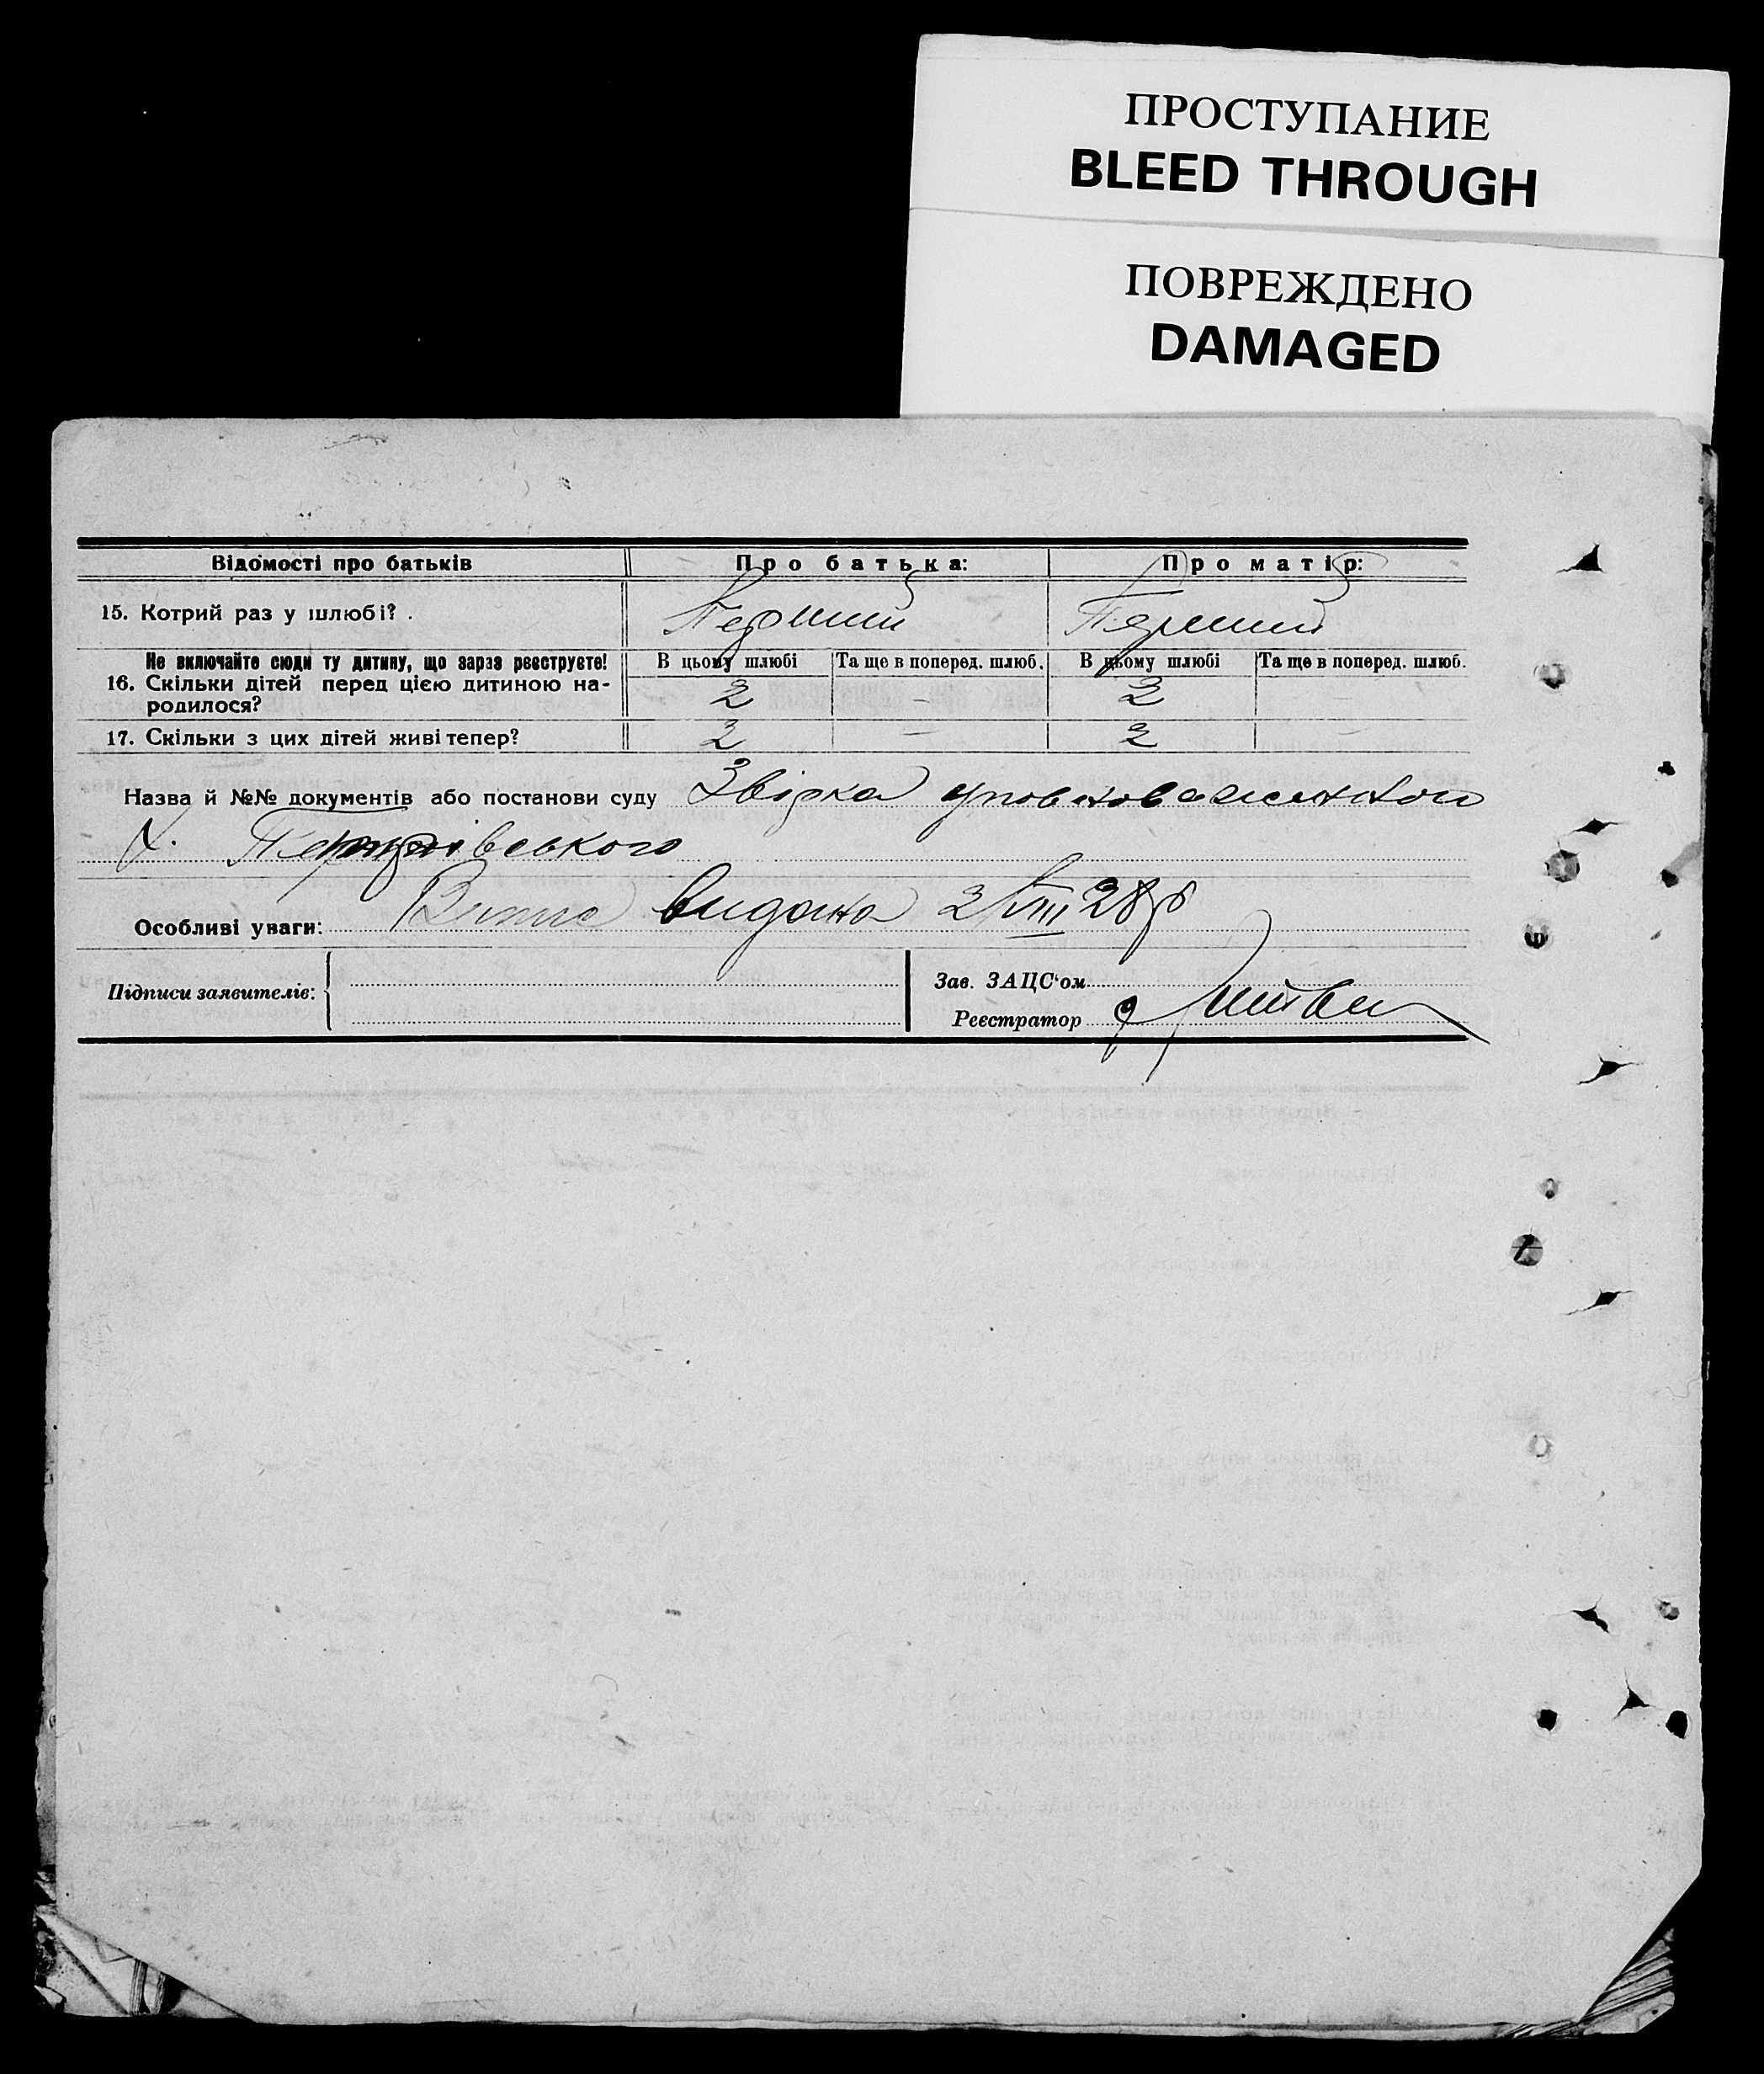 ПРОСТУПАНИЕ
BLEED THROUGH
ПОВРЕЖДЕНО
DAMAGED
Відомості про батьків Про батька: Про матір:
15. Котрий раз у шлюбі? . Перший Перший
Не включайте сюди ту дитину, що зараз реєструєте! В цьому шлюбі Та ще в поперед. шлюб. В цьому шлюбі Та ще в поперед. шлюб.
16. Скільки дітей перед цією дитиною на-
родилося? 2 – 2 –
17. Скільки з цих дітей живі тепер? 2 – 2 –
Назва й №№ документів або постанови суду Звірка уповноваженного
Х.
Особливі уваги: Випис видана 2/VIII 28 р
Підписи заявителів:
Зав. ЗАЦС'ом
Реєстратор